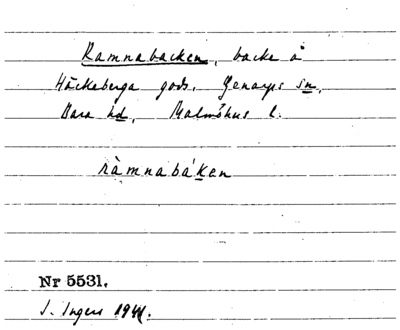 Ramnabacken, backe å
Häckeberga gods, Genarps sn,
Bara hd, Malmöhus l.
ràmnabáken
Nr 5531.
I. Ingers 1941.